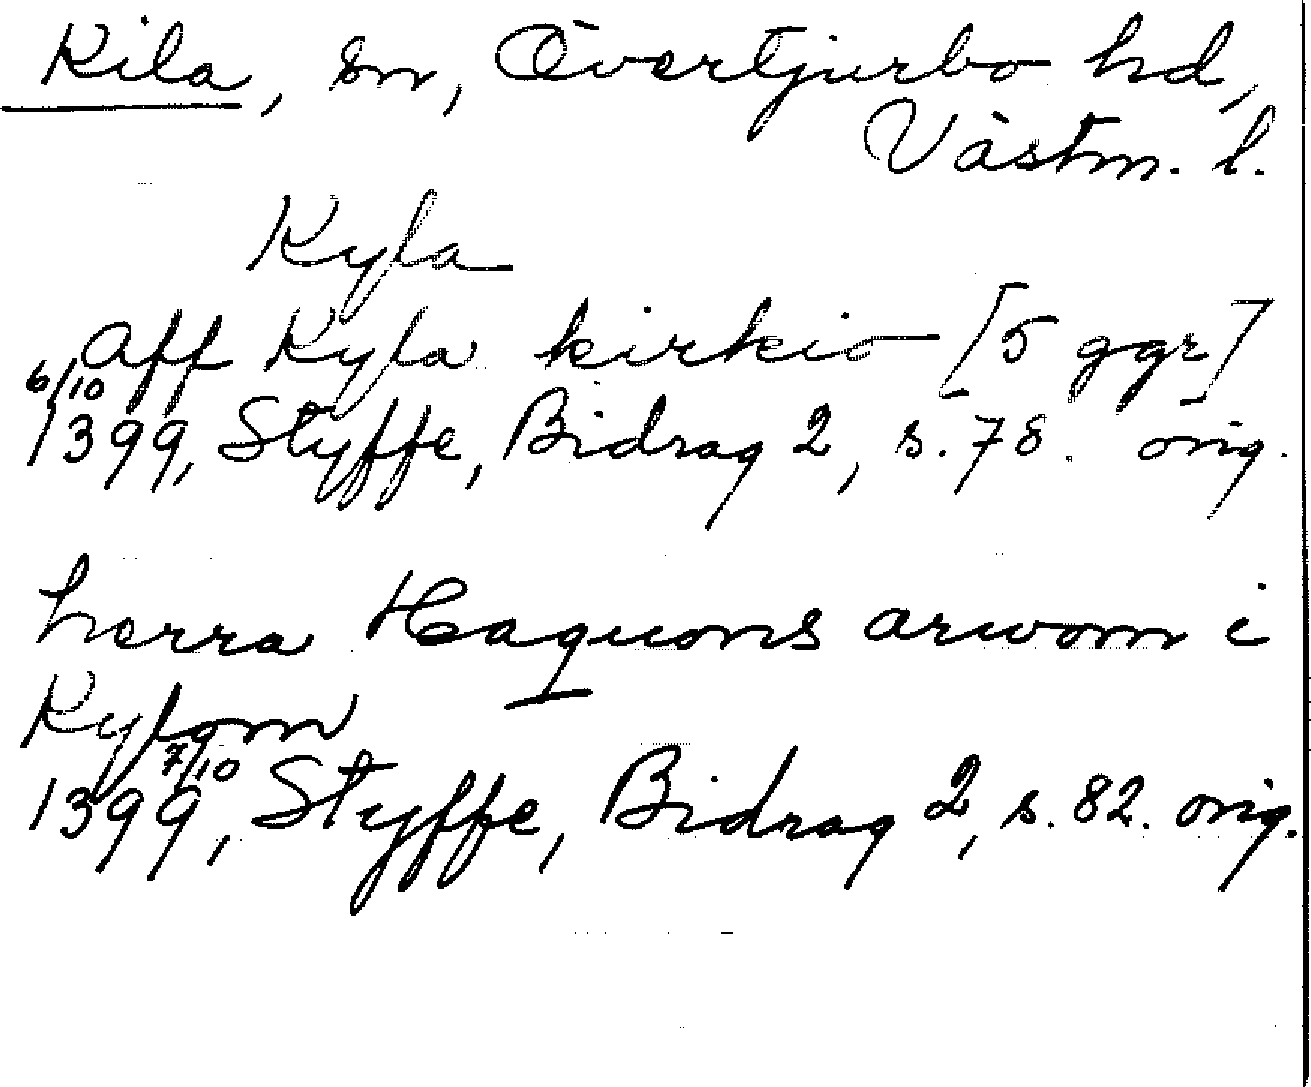 Kila, sn, Övertjurbo hd,
Västm. l.
Kyla
aff Kyla kirkio [5 ggr]
6/10
1399, Styffe, Bidrag 2, s. 78. orig.
herra Haquons arwom i
Kylom
7/10
1399, Styffe, Bidrag 2, s. 82. orig.